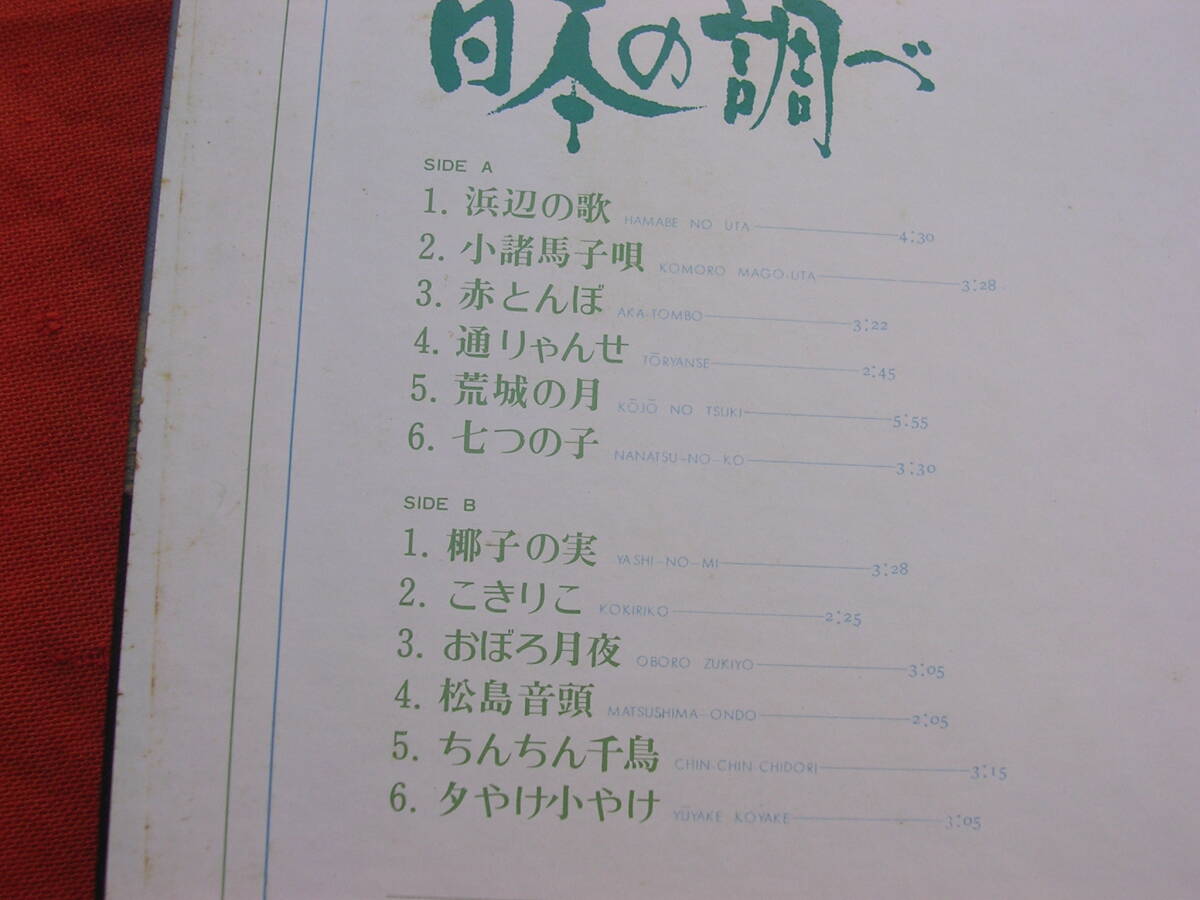 日本の調べ
SIDE A
1. 浜辺の歌 HAMABE NO UTA 4:30
2. 小諸馬子唄 KOMORO MAGO-UTA 3:28
3. 赤とんぼ AKA-TOMBO 3:22
4. 通りゃんせ TŌRYANSE 2:45
5. 荒城の月 KŌJŌ NO TSUKI 5:55
6. 七つの子 NANATSU-NO-KO 3:30
SIDE B
1. 椰子の実 YASHI-NO-MI 3:28
2. こきりこ KOKIRIKO 2:25
3. おぼろ月夜 OBORO ZUKIYO 3:05
4. 松島音頭 MATSUSHIMA-ONDO 2:05
5. ちんちん千鳥 CHIN-CHIN-CHIDORI 3:15
6. 夕やけ小やけ YŪYAKE KOYAKE 3:05